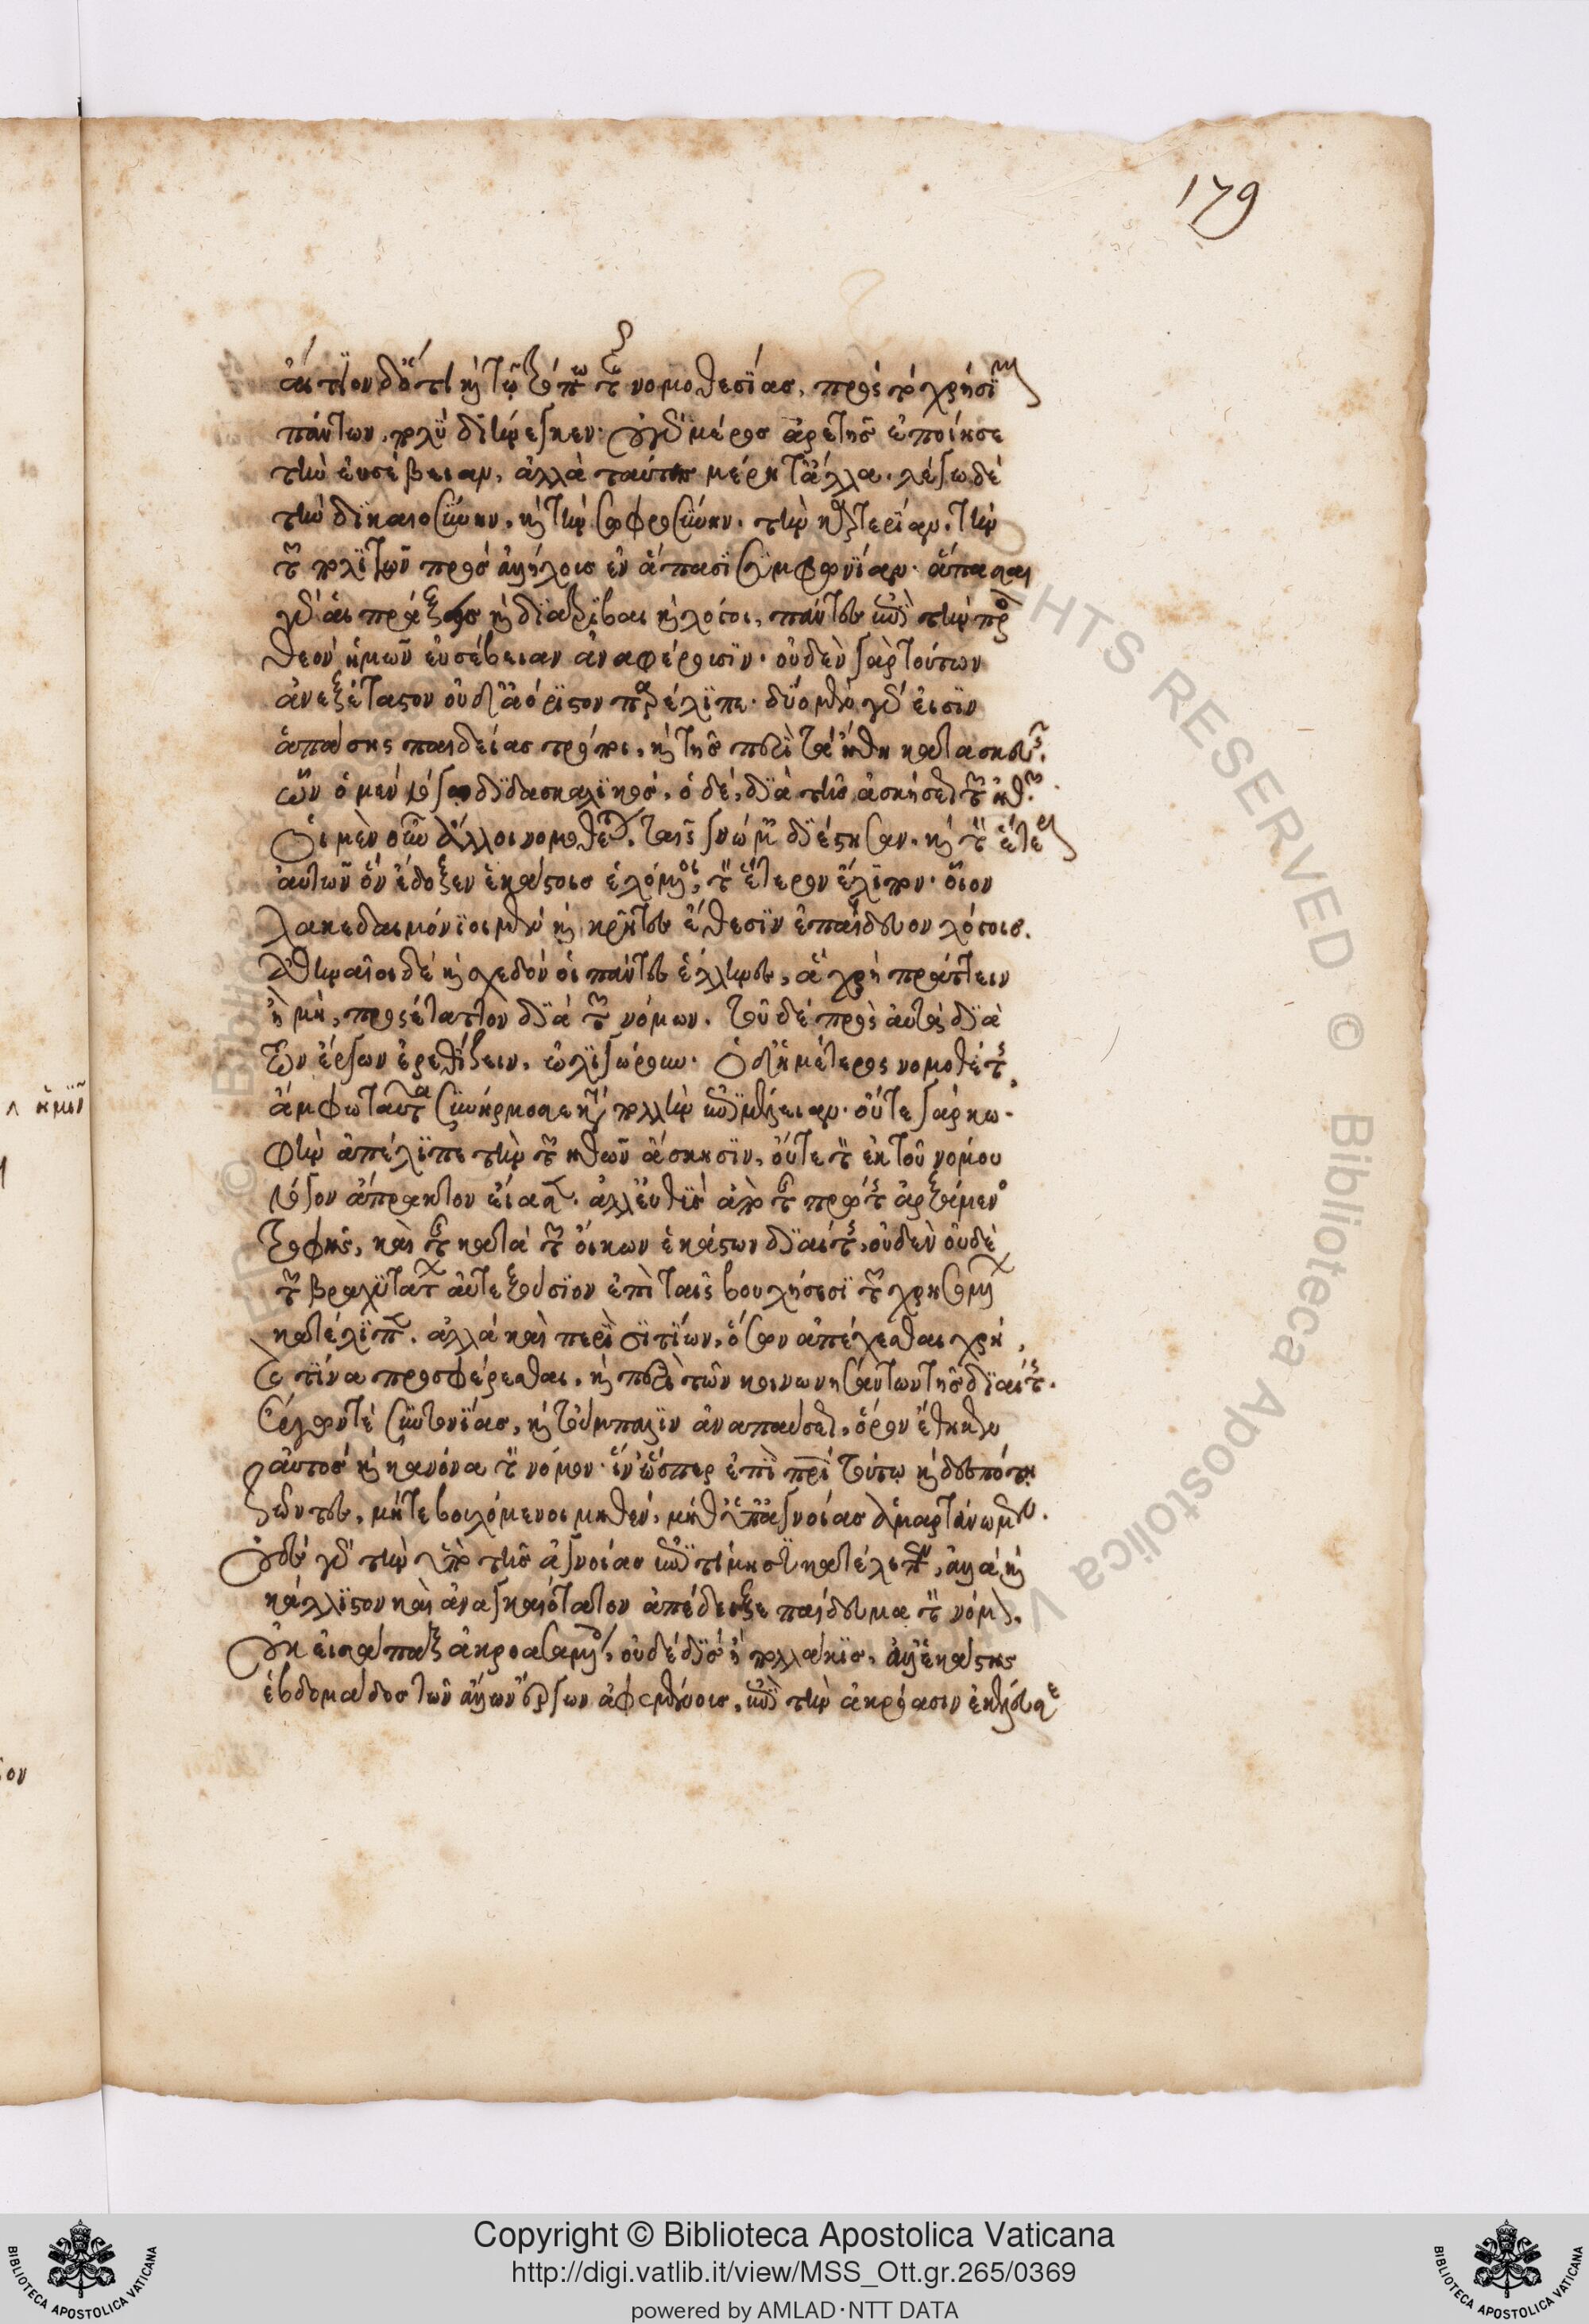 179
αἴτιον δ' ὅτι καὶ τῷ τρόπῳ τῆς νομοθεσίας, πρὸς τὸ χρήσιμον
πάντων, πολὺ διήνεγκεν· οὐ γὰρ μέρος ἀρετῆς ἐποίησε
τὴν εὐσέβειαν, ἀλλὰ ταύτης μέρη τἄλλα. λέγω δὲ
τὴν δικαιοσύνην, καὶ τὴν σωφροσύνην, τὴν καρτερίαν, τὴν
τῶν πολιτῶν πρὸς ἀλλήλους ἐν ἅπασι συμφωνίαν· ἅπασαι
γὰρ αἱ πράξεις καὶ διατριβαὶ καὶ λόγοι, πάντες ἐπὶ τὴν πρὸς
θεὸν ἡμῶν εὐσέβειαν ἀναφέρουσιν· οὐδὲν γὰρ τούτων
ἀνεξέταστον οὐδ' ἀόριστον παρέλιπε· δύο μὲν γάρ εἰσιν
ἁπάσης παιδείας τρόποι, καὶ τῆς περὶ τὰ ἤθη κατασκευῆς.
ὧν ὁ μὲν λόγῳ διδασκαλικός, ὁ δέ, διὰ τῆς ἀσκήσεως τῶν ἠθῶν.
Οἱ μὲν οὖν ἄλλοι νομοθέται, ταῖς γνώμαις διέστησαν, καὶ τὸν ἕτερον
αὐτῶν ὃν ἔδοξεν ἑκάστοις ἑλόμενοι, τὸν ἕτερον ἔλιπον· οἷον
Λακεδαιμόνιοι μὲν καὶ Κρῆτες ἔθεσιν ἐπαίδευον λόγοις.
Ἀθηναῖοι δὲ καὶ σχεδὸν οἱ πάντες ἕλληνες, ἃ χρὴ πράττειν
ἢ μή, προσέταττον διὰ τῶν νόμων. τοῦ δὲ πρὸς αὐτὰ διὰ
τῶν ἔργων ἐρεθίζειν, ὠλιγώρουν· Ὁ δ' ἡμέτερος νομοθέτης,
ἄμφω ταῦτα συνήρμοσε κατὰ πολλὴν ἐπιμέλειαν· οὔτε γὰρ κω-
φὴν ἀπέλιπε τὴν τῶν ἠθῶν ἄσκησιν, οὔτε τὸν ἐκ τοῦ νόμου
λόγον ἄπρακτον εἴασεν. ἀλλ' εὐθὺς ἀπὸ τῆς πρώτης ἀρξάμενος
τροφῆς, καὶ τῆς κατὰ τῶν οἴκων ἑκάστων διαίτης, οὐδὲν οὐδὲ
τῶν βραχυτάτων αὐτεξούσιον ἐπὶ ταῖς βουλήσεσι τῶν χρησομένων
κατέλιπεν. ἀλλὰ καὶ περὶ σιτίων, ὅσων ἀπέχεσθαι χρή,
καὶ τίνα προσφέρεσθαι, καὶ περὶ τῶν κοινωνησάντων τῆς διαίτης.
ἔργων τε συντονίας, καὶ τοὔμπαλιν ἀναπαύσεως, ὅρον ἔθηκεν
αὐτὸς καὶ κανόνα τὸν νόμον· ἵν' ὥσπερ ἐπὶ πατρὶ τούτῳ καὶ δεσπότῃ
ζῶντες, μήτε βουλόμενοι μηθέν, μήθ' ὑπ' ἀγνοίας ἁμαρτάνωμεν.
Οὐδὲ γὰρ τὴν ὑπὸ τῆς ἀγνοίας ἐπιτίμησιν κατέλιπεν, ἀλλὰ καὶ
κάλλιστον καὶ ἀναγκαιότατον ἀπέδειξε παίδευμα τὸν νόμον.
Οὐκ εἰσάπαξ ἀκροασαμένοις, οὐδὲ δὶς ἢ πολλάκις, ἀλλ' ἑκάστης
ἑβδομάδος τῶν ἄλλων ἔργων ἀφεμένους, ἐπὶ τὴν ἀκρόασιν ἐκέλευσε
ἡμῖν
ον